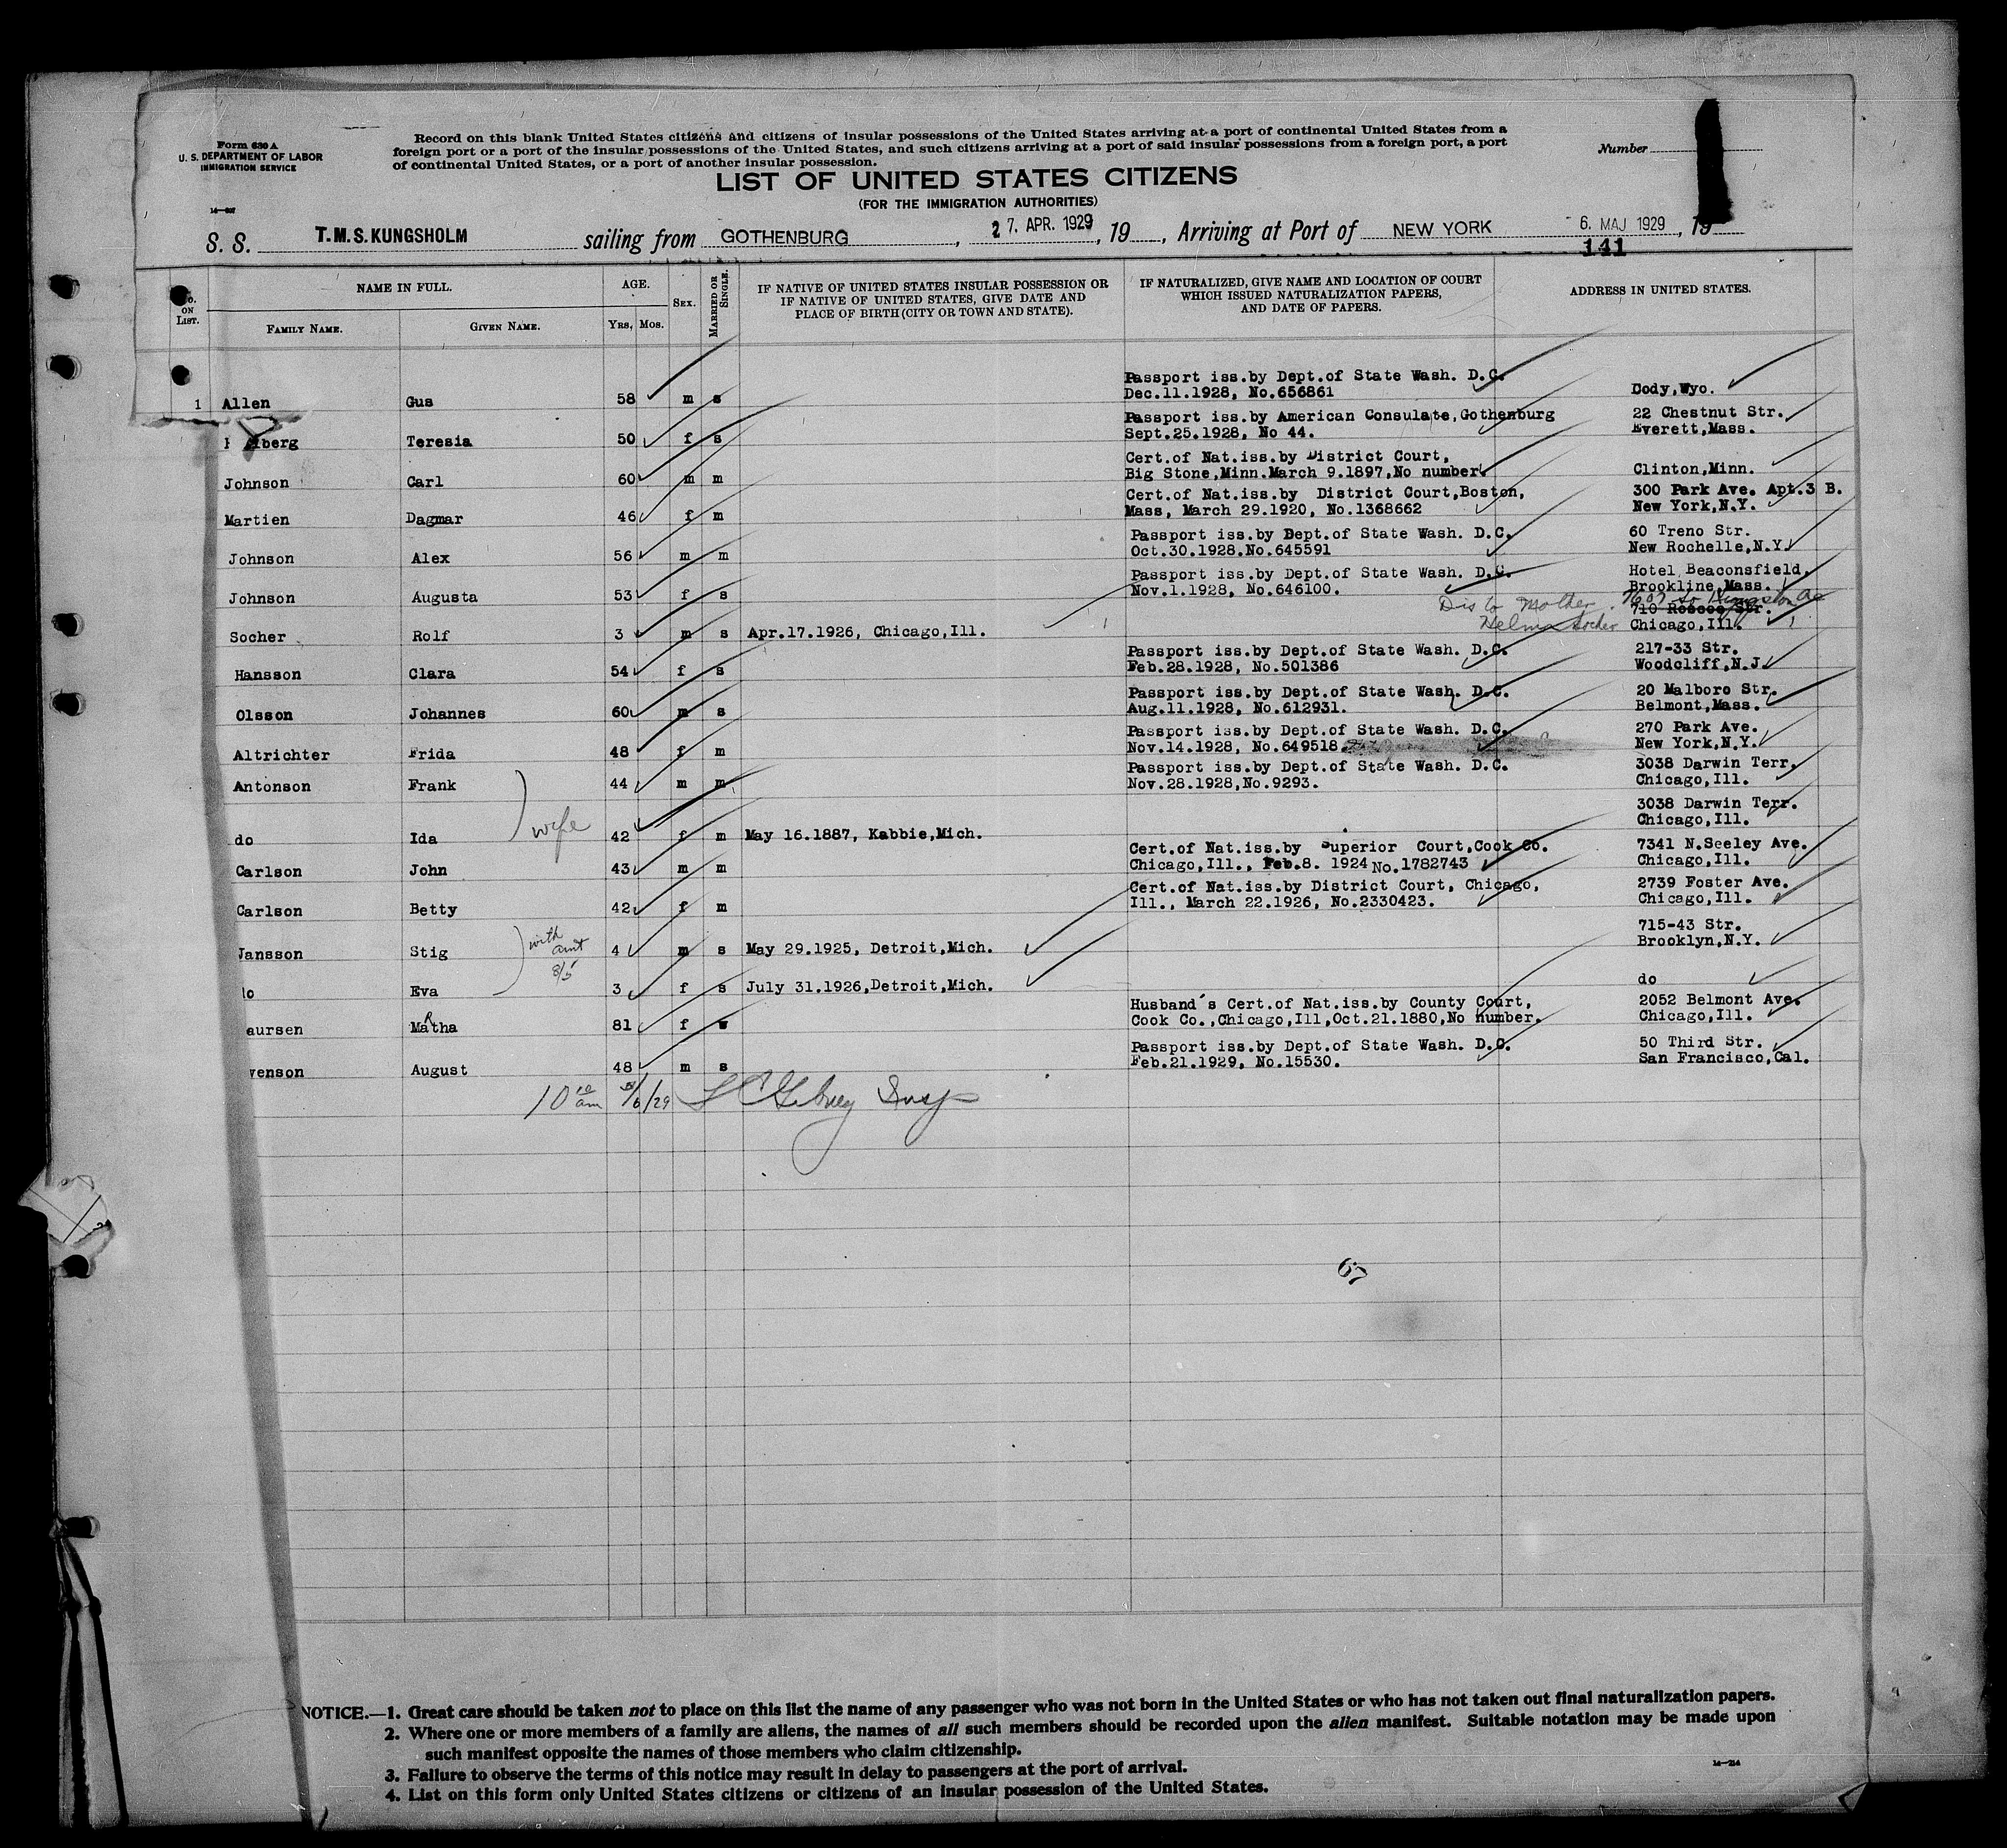 Form 630 A
U. S. DEPARTMENT OF LABOR
IMMIGRATION SERVICE
Record on this blank United States citizens and citizens of insular possessions of the United States arriving at a port of continental United States from a
foreign port or a port of the insular possessions of the United States, and such citizens arriving at a port of said insular possessions from a foreign port, a port
of continental United States, or a port of another insular possession.
Number
LIST OF UNITED STATES CITIZENS
(FOR THE IMMIGRATION AUTHORITIES)
S. S. T.M.S.KUNGSHOLM sailing from GOTHENBURG, 27. APR. 1929, 19, Arriving at Port of NEW YORK 6. MAJ 1929, 19
141
ON LIST. NAME IN FULL. FAMILY NAME. GIVEN NAME. AGE. YRS. MOS. SEX. MARRIED OR SINGLE. IF NATIVE OF UNITED STATES INSULAR POSSESSION OR IF NATIVE OF UNITED STATES, GIVE DATE AND PLACE OF BIRTH (CITY OR TOWN AND STATE). IF NATURALIZED, GIVE NAME AND LOCATION OF COURT WHICH ISSUED NATURALIZATION PAPERS, AND DATE OF PAPERS. ADDRESS IN UNITED STATES.
Passport iss.by Dept.of State Wash. D.C.
1 Allen Gus 58 m s Dec.11.1928, No.656861 Cody,Wyo.
Passport iss.by American Consulate,Gothenburg 22 Chestnut Str.
berg Teresia 50 f s Sept.25.1928, No 44. Everett,Mass.
Cert.of Nat.iss.by District Court,
Johnson Carl 60 m m Big Stone,Minn.March 9.1897,No number. Clinton,Minn.
Cert.of Nat.iss.by District Court,Boston, 300 Park Ave. Apt.3 B.
Martien Dagmar 46 f m Mass, March 29.1920, No.1368662 New York,N.Y.
Passport iss.by Dept.of State Wash. D.C. 60 Treno Str.
Johnson Alex 56 m m Oct.30.1928.No.645591 New Rochelle,N.Y.
Passport iss.by Dept.of State Wash. D.C. Hotel Beaconsfield,
Johnson Augusta 53 f s Nov.1.1928, No.646100. Brookline,Mass.
Dis to Mother 7607 So Kingston Ave
710 Roscoe Str.
Socher Rolf 3 m s Apr.17.1926, Chicago,Ill. Helma Socher Chicago,Ill.
Passport iss.by Dept.of State Wash. D.C. 217-33 Str.
Hansson Clara 54 f s Feb.28.1928, No.501386 Woodcliff,N.J.
Passport iss.by Dept.of State Wash. D.C. 20 Malboro Str.
Olsson Johannes 60 m s Aug.11.1928, No.612931. Belmont,Mass.
Passport iss.by Dept.of State Wash. D.C. 270 Park Ave.
Altrichter Frida 48 f m Nov.14.1928, No.649518 New York,N.Y.
Passport iss.by Dept.of State Wash. D.C. 3038 Darwin Terr.
Antonson Frank 44 m m Nov.28.1928,No.9293. Chicago,Ill.
3038 Darwin Terr.
Chicago,Ill.
do Ida wife 42 f m May 16.1887, Kabbie,Mich.
Cert.of Nat.iss.by Superior Court,Cook Co. 7341 N.Seeley Ave.
Carlson John 43 m m Chicago,Ill., Feb.8. 1924 No.1782743 Chicago,Ill.
Cert.of Nat.iss.by District Court, Chicago, 2739 Foster Ave.
Carlson Betty 42 f m Ill., March 22.1926, No.2330423. Chicago,Ill.
715-43 Str.
Jansson Stig 4 m s May 29.1925, Detroit,Mich. Brooklyn,N.Y.
with
aunt
8/5
do Eva 3 f s July 31.1926,Detroit,Mich. do
Husband's Cert.of Nat.iss.by County Court, 2052 Belmont Ave.
aursen MaRtha 81 f w Cook Co.,Chicago,Ill,Oct.21.1880,No number. Chicago,Ill.
Passport iss.by Dept.of State Wash. D.C. 50 Third Str.
venson August 48 m s Feb.21.1929, No.15530. San Francisco,Cal.
10 10 am 5/6/29 Insp
67
NOTICE.—1. Great care should be taken not to place on this list the name of any passenger who was not born in the United States or who has not taken out final naturalization papers.
2. Where one or more members of a family are aliens, the names of all such members should be recorded upon the alien manifest. Suitable notation may be made upon
such manifest opposite the names of those members who claim citizenship.
3. Failure to observe the terms of this notice may result in delay to passengers at the port of arrival.
14—214
4. List on this form only United States citizens or citizens of an insular possession of the United States.